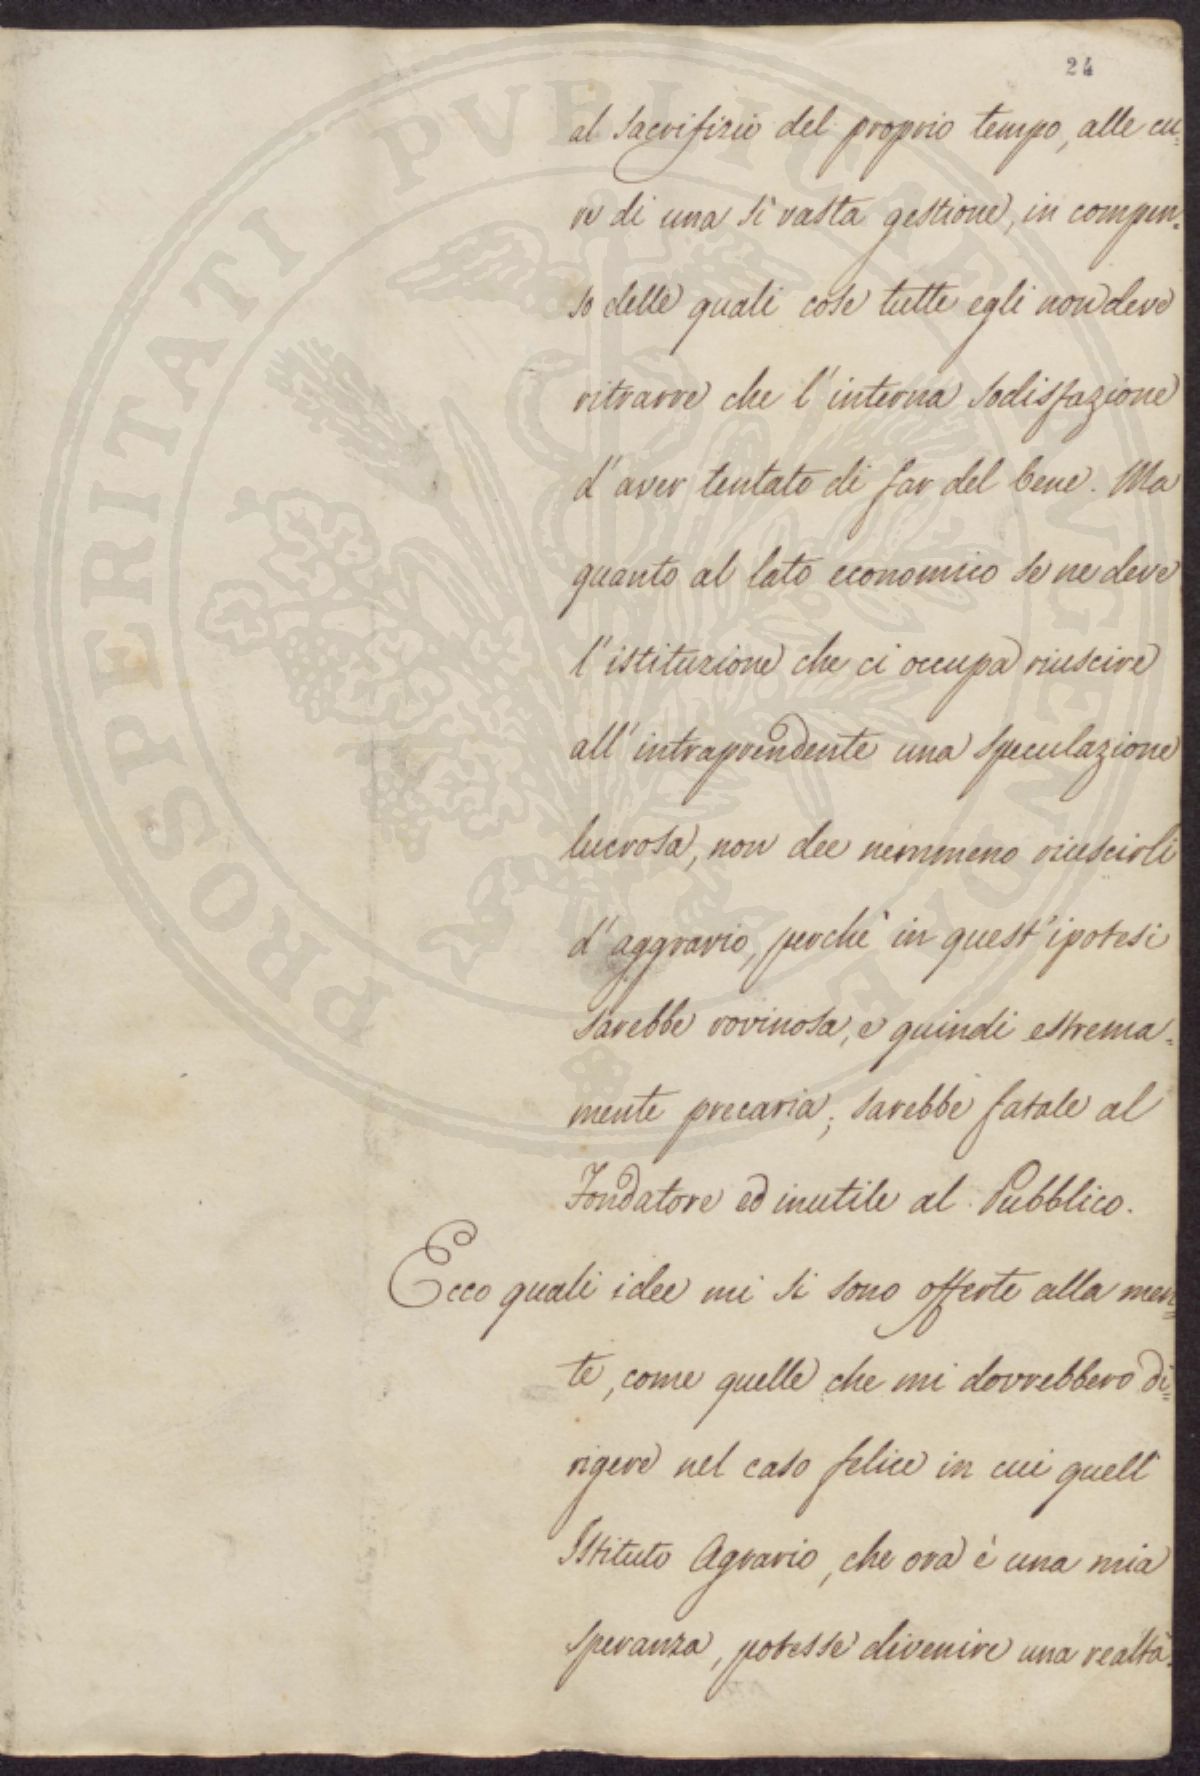 24
al sacrifizio del proprio tempo, alle cu=
re di una sì vasta gestione, in compen=
so delle quali cose tutte egli non deve
ritrarre che l'interna sodisfazione
d'aver tentato di far del bene. Ma
quanto al lato economico se ne deve
l'istituzione che ci occupa riuscire
all'intraprendente una speculazione
lucrosa, non dee nemmeno riuscirli
d'aggravio, perchè in quest'ipotesi
sarebbe rovinosa, e quindi estrema=
mente precaria; sarebbe fatale al
Fondatore ed inutile al Pubblico.
Ecco quali idee mi si sono offerte alla men=
te, come quelle che mi dovrebbero di=
rigere nel caso felice in cui quell'
Istituto Agrario, che ora è una mia
speranza, potesse divenire una realtà.
PROSPERITATI PVBLICAE AVGENDAE